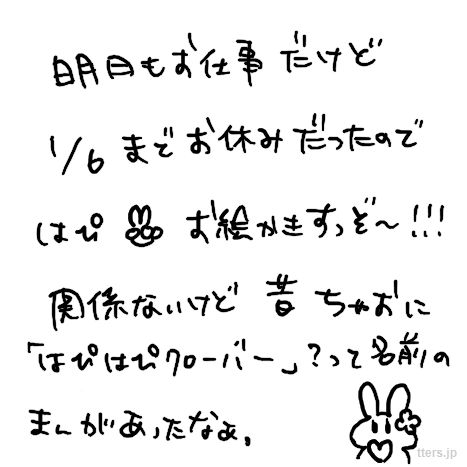 明日もお仕事だけど
1/6 までお休みだったので
はぴ お絵かきすっぞ〜!!!
関係ないけど 昔 ちゃおに
「はぴはぴクローバー」?って名前の
まんがあったなぁ。
tters.jp